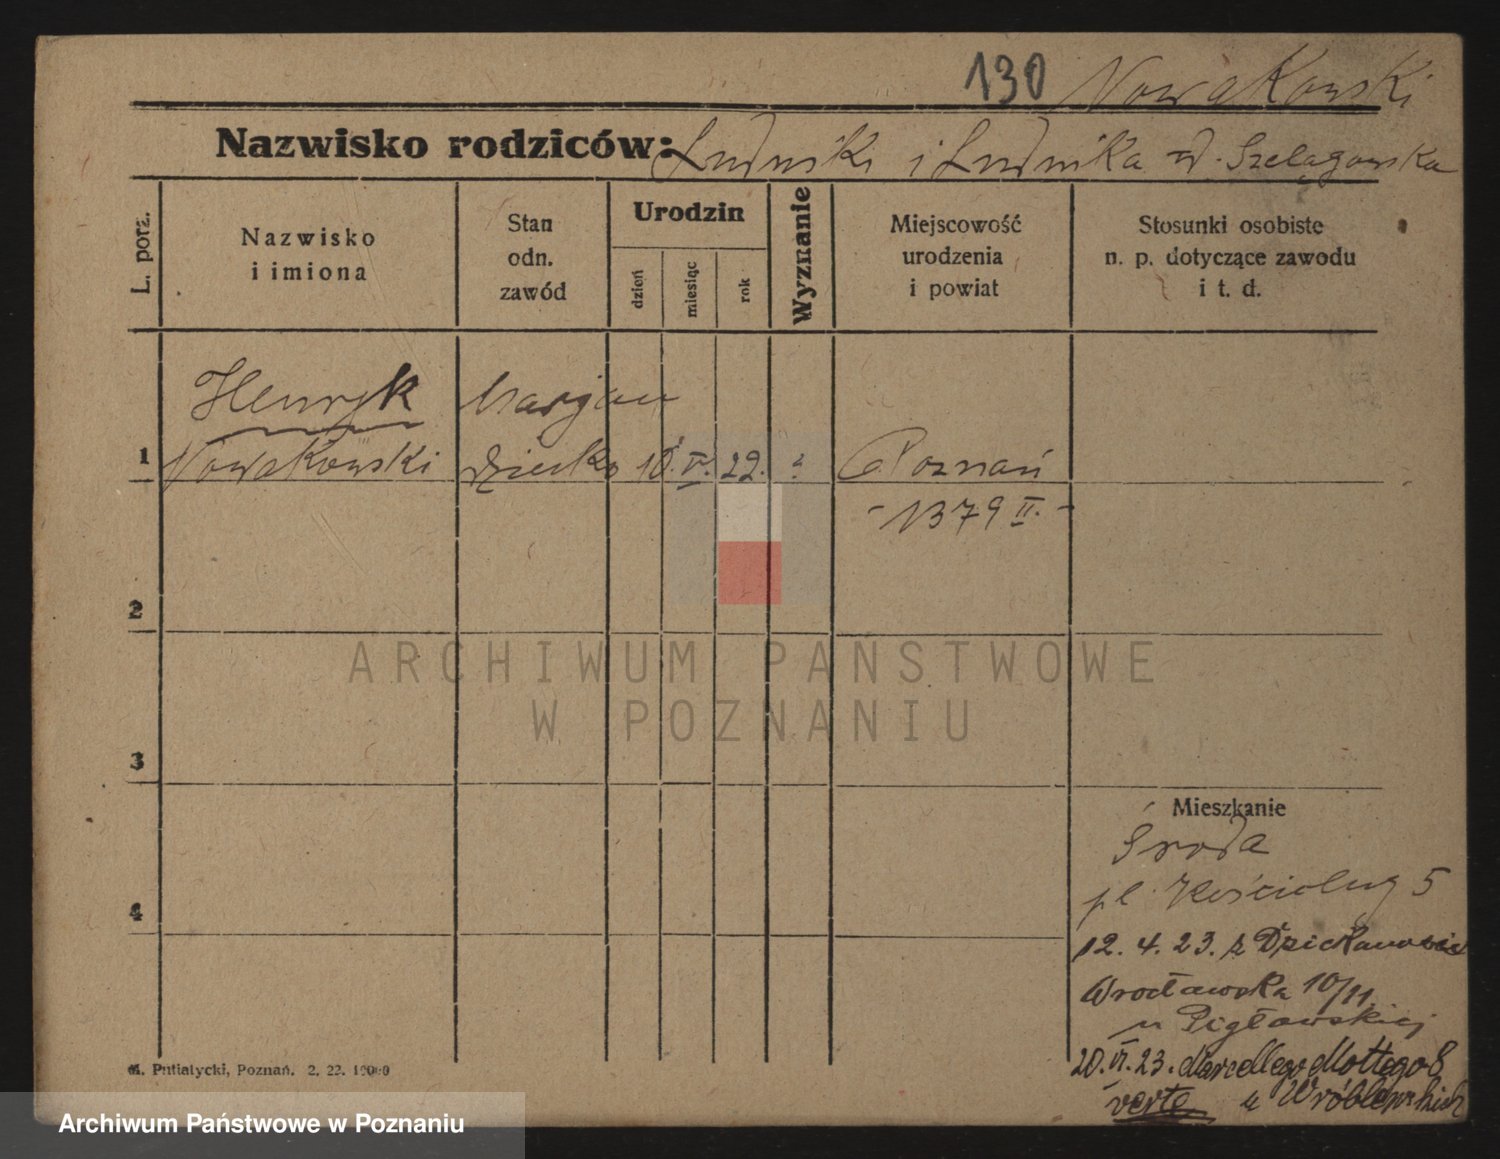 130 Nowakowski
Nazwisko rodziców: Ludwiki i Ludwika Szelągowska
L. porz.
Nazwisko
i imiona
Stan
odn.
zawód
Urodzin
dzień
miesiąc
rok
Wyznanie
Miejscowość
urodzenia
i powiat
Stosunki osobiste
n. p. dotyczące zawodu
i t. d.
Henryk Marjan
1 Nowakowski dziecko 10. V. 22. Poznań
- 1379 II. -
2
ARCHIWUM PAŃSTWOWE
W POZNANIU
3
Mieszkanie
Środa
pl. Kościelny 5
4
12. 4. 23. z Dziekanowic
Wrocławska 10/11.
u Pigłowskiej
20. VI. 23. Marcellego Mottego 8
verte u Wróblewskich
M. Putiatycki, Poznań. 2. 22. 10000
Archiwum Państwowe w Poznaniu